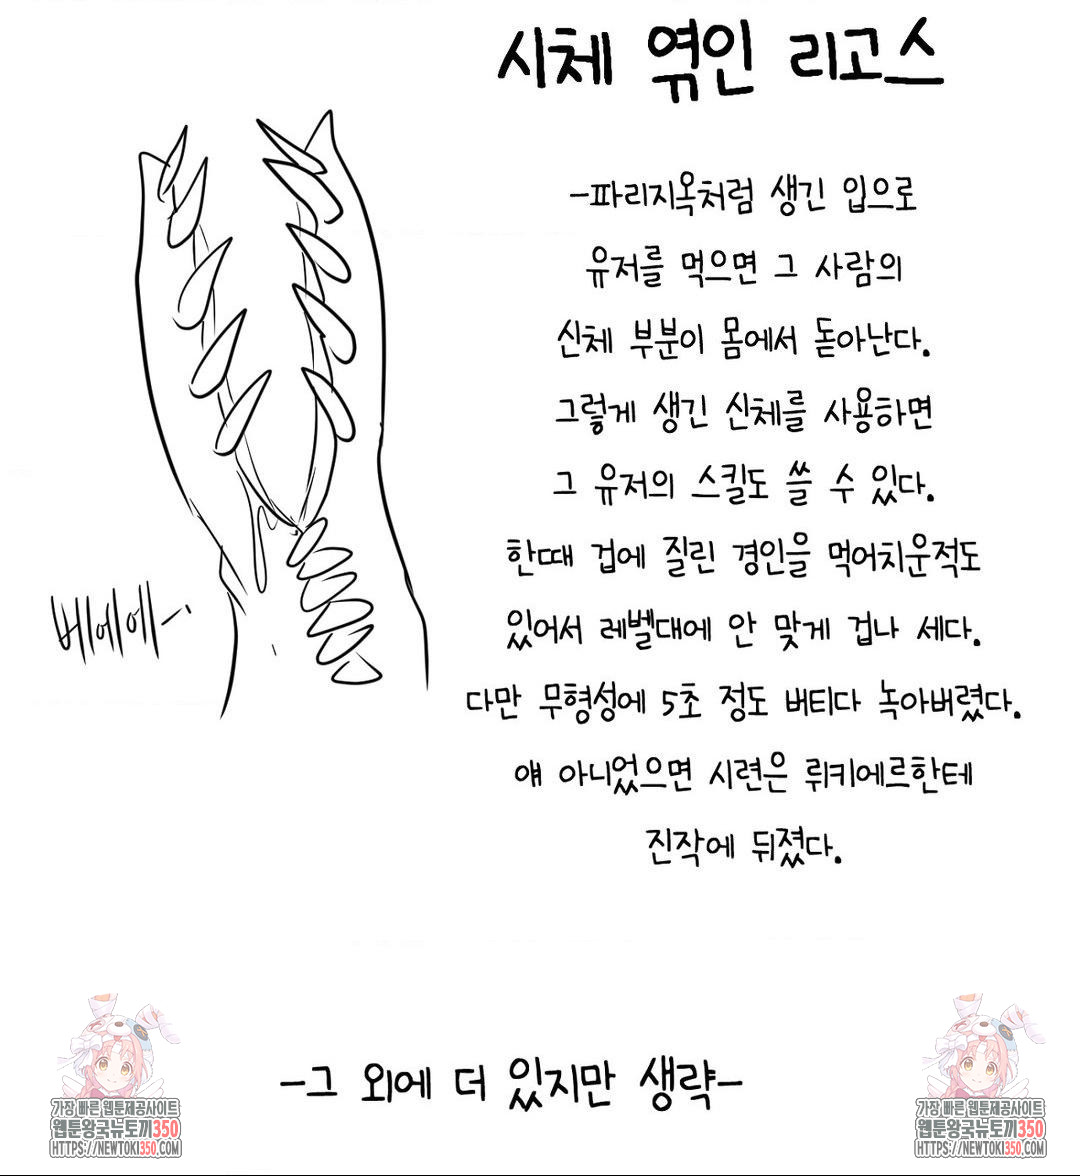 시체 엮인 리고스
-파리지옥처럼 생긴 입으로
유저를 먹으면 그 사람의
신체 부분이 몸에서 돋아난다.
그렇게 생긴 신체를 사용하면
그 유저의 스킬도 쓸 수 있다.
한때 겁에 질린 경인을 먹어치운적도
있어서 레벨대에 안 맞게 겁나 세다.
다만 무형성에 5초 정도 버티다 녹아버렸다.
얘 아니었으면 시련은 뤼키에르한테
진작에 뒤졌다.
베에에-.
-그 외에 더 있지만 생략-
가장 빠른 웹툰제공사이트
웹툰왕국뉴토끼350
HTTPS://NEWTOKI350.COM
가장 빠른 웹툰제공사이트
웹툰왕국뉴토끼350
HTTPS://NEWTOKI350.COM